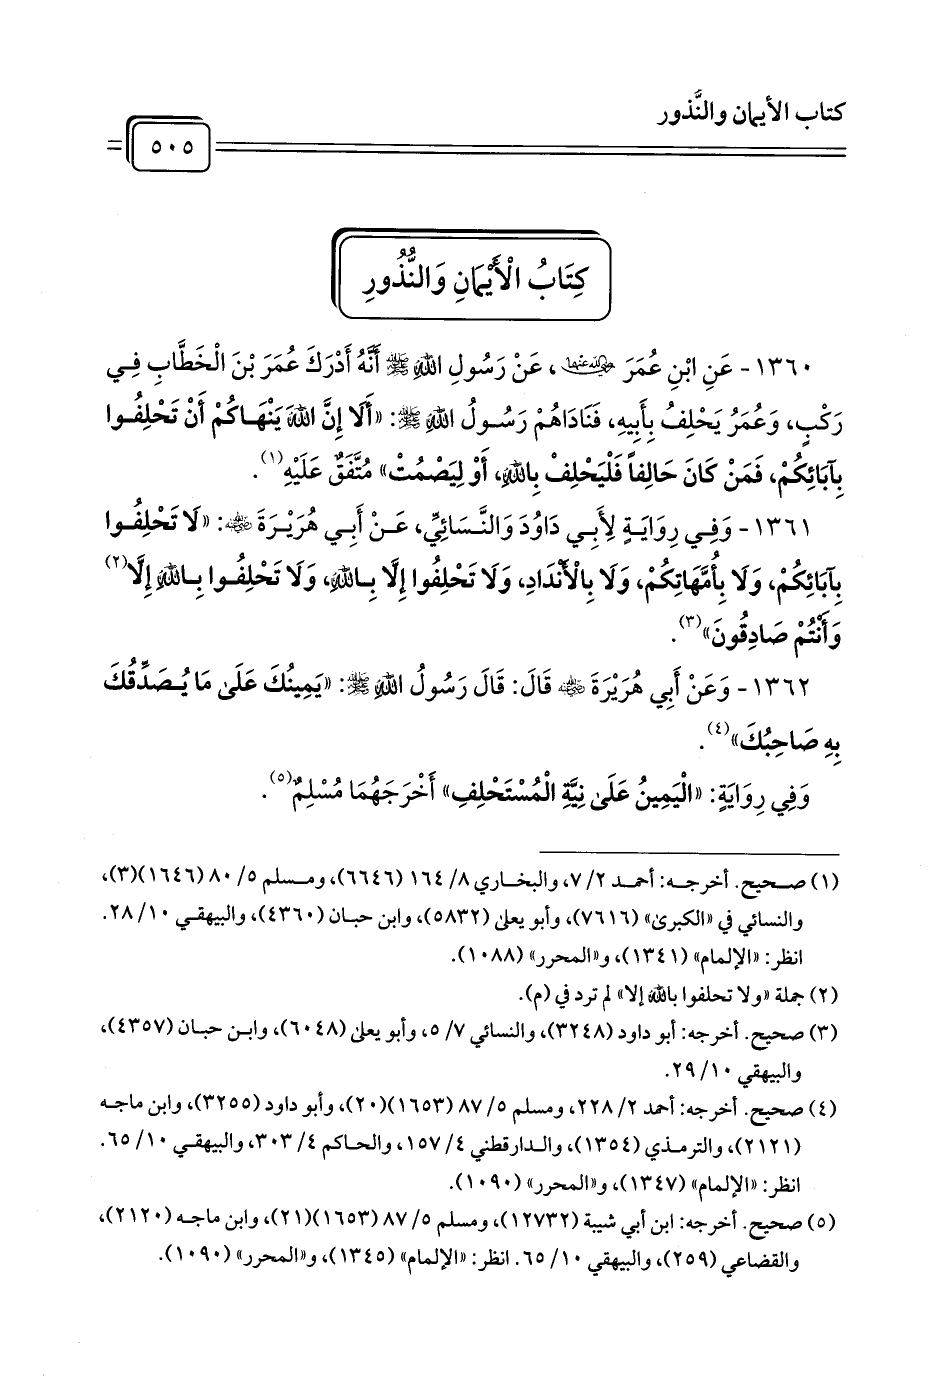 كتاب الأيمان والنُّذور
٥٠٥
كِتَابُ الْأَيْمَانِ وَالنُّذُورِ
١٣٦٠- عَنِ ابْنِ عُمَرَ رضي الله عنهما، عَنْ رَسُولِ اللهِ ﷺ أَنَّهُ أَدْرَكَ عُمَرَ بْنَ الْخَطَّابِ فِي
رَكْبٍ، وَعُمَرُ يَحْلِفُ بِأَبِيهِ، فَنَادَاهُمْ رَسُولُ اللهِ ﷺ: «أَلَا إِنَّ اللهَ يَنْهَاكُمْ أَنْ تَحْلِفُوا
بِآبَائِكُمْ، فَمَنْ كَانَ حَالِفاً فَلْيَحْلِفْ بِاللهِ، أَوْ لِيَصْمُتْ» مُتَّفَقٌ عَلَيْهِ(١).
١٣٦١- وَفِي رِوَايَةٍ لِأَبِي دَاوُدَ وَالنَّسَائِيِّ، عَنْ أَبِي هُرَيْرَةَ رضي الله عنه: «لَا تَحْلِفُوا
بِآبَائِكُمْ، وَلَا بِأُمَّهَاتِكُمْ، وَلَا بِالْأَنْدَادِ، وَلَا تَحْلِفُوا إِلَّا بِاللهِ، وَلَا تَحْلِفُوا بِاللهِ إِلَّا(٢)
وَأَنْتُمْ صَادِقُونَ»(٣).
١٣٦٢- وَعَنْ أَبِي هُرَيْرَةَ رضي الله عنه قَالَ: قَالَ رَسُولُ اللهِ ﷺ: «يَمِينُكَ عَلَىٰ مَا يُصَدِّقُكَ
بِهِ صَاحِبُكَ»(٤).
وَفِي رِوَايَةٍ: «الْيَمِينُ عَلَىٰ نِيَّةِ الْمُسْتَحْلِفِ» أَخْرَجَهُمَا مُسْلِمٌ(٥).
(١) صحيح. أخرجه: أحمد ٢/ ٧، والبخاري ٨/ ١٦٤ (٦٦٤٦)، ومسلم ٥/ ٨٠ (١٦٤٦)(٣)،
والنسائي في «الكبرىٰ» (٧٦١٦)، وأبو يعلىٰ (٥٨٣٢)، وابن حبان (٤٣٦٠)، والبيهقي ١٠/ ٢٨.
انظر: «الإلمام» (١٣٤١)، و«المحرر» (١٠٨٨).
(٢) جملة «ولا تحلفوا بالله إلا» لم ترد في (م).
(٣) صحيح. أخرجه: أبو داود (٣٢٤٨)، والنسائي ٧/ ٥، وأبو يعلىٰ (٦٠٤٨)، وابن حبان (٤٣٥٧)،
والبيهقي ١٠/ ٢٩.
(٤) صحيح. أخرجه: أحمد ٢/ ٢٢٨، ومسلم ٥/ ٨٧ (١٦٥٣)(٢٠)، وأبو داود (٣٢٥٥)، وابن ماجه
(٢١٢١)، والترمذي (١٣٥٤)، والدارقطني ٤/ ١٥٧، والحاكم ٤/ ٣٠٣، والبيهقي ١٠/ ٦٥.
انظر: «الإلمام» (١٣٤٧)، و«المحرر» (١٠٩٠).
(٥) صحيح. أخرجه: ابن أبي شيبة (١٢٧٣٢)، ومسلم ٥/ ٨٧ (١٦٥٣)(٢١)، وابن ماجه (٢١٢٠)،
والقضاعي (٢٥٩)، والبيهقي ١٠/ ٦٥. انظر: «الإلمام» (١٣٤٥)، و«المحرر» (١٠٩٠).